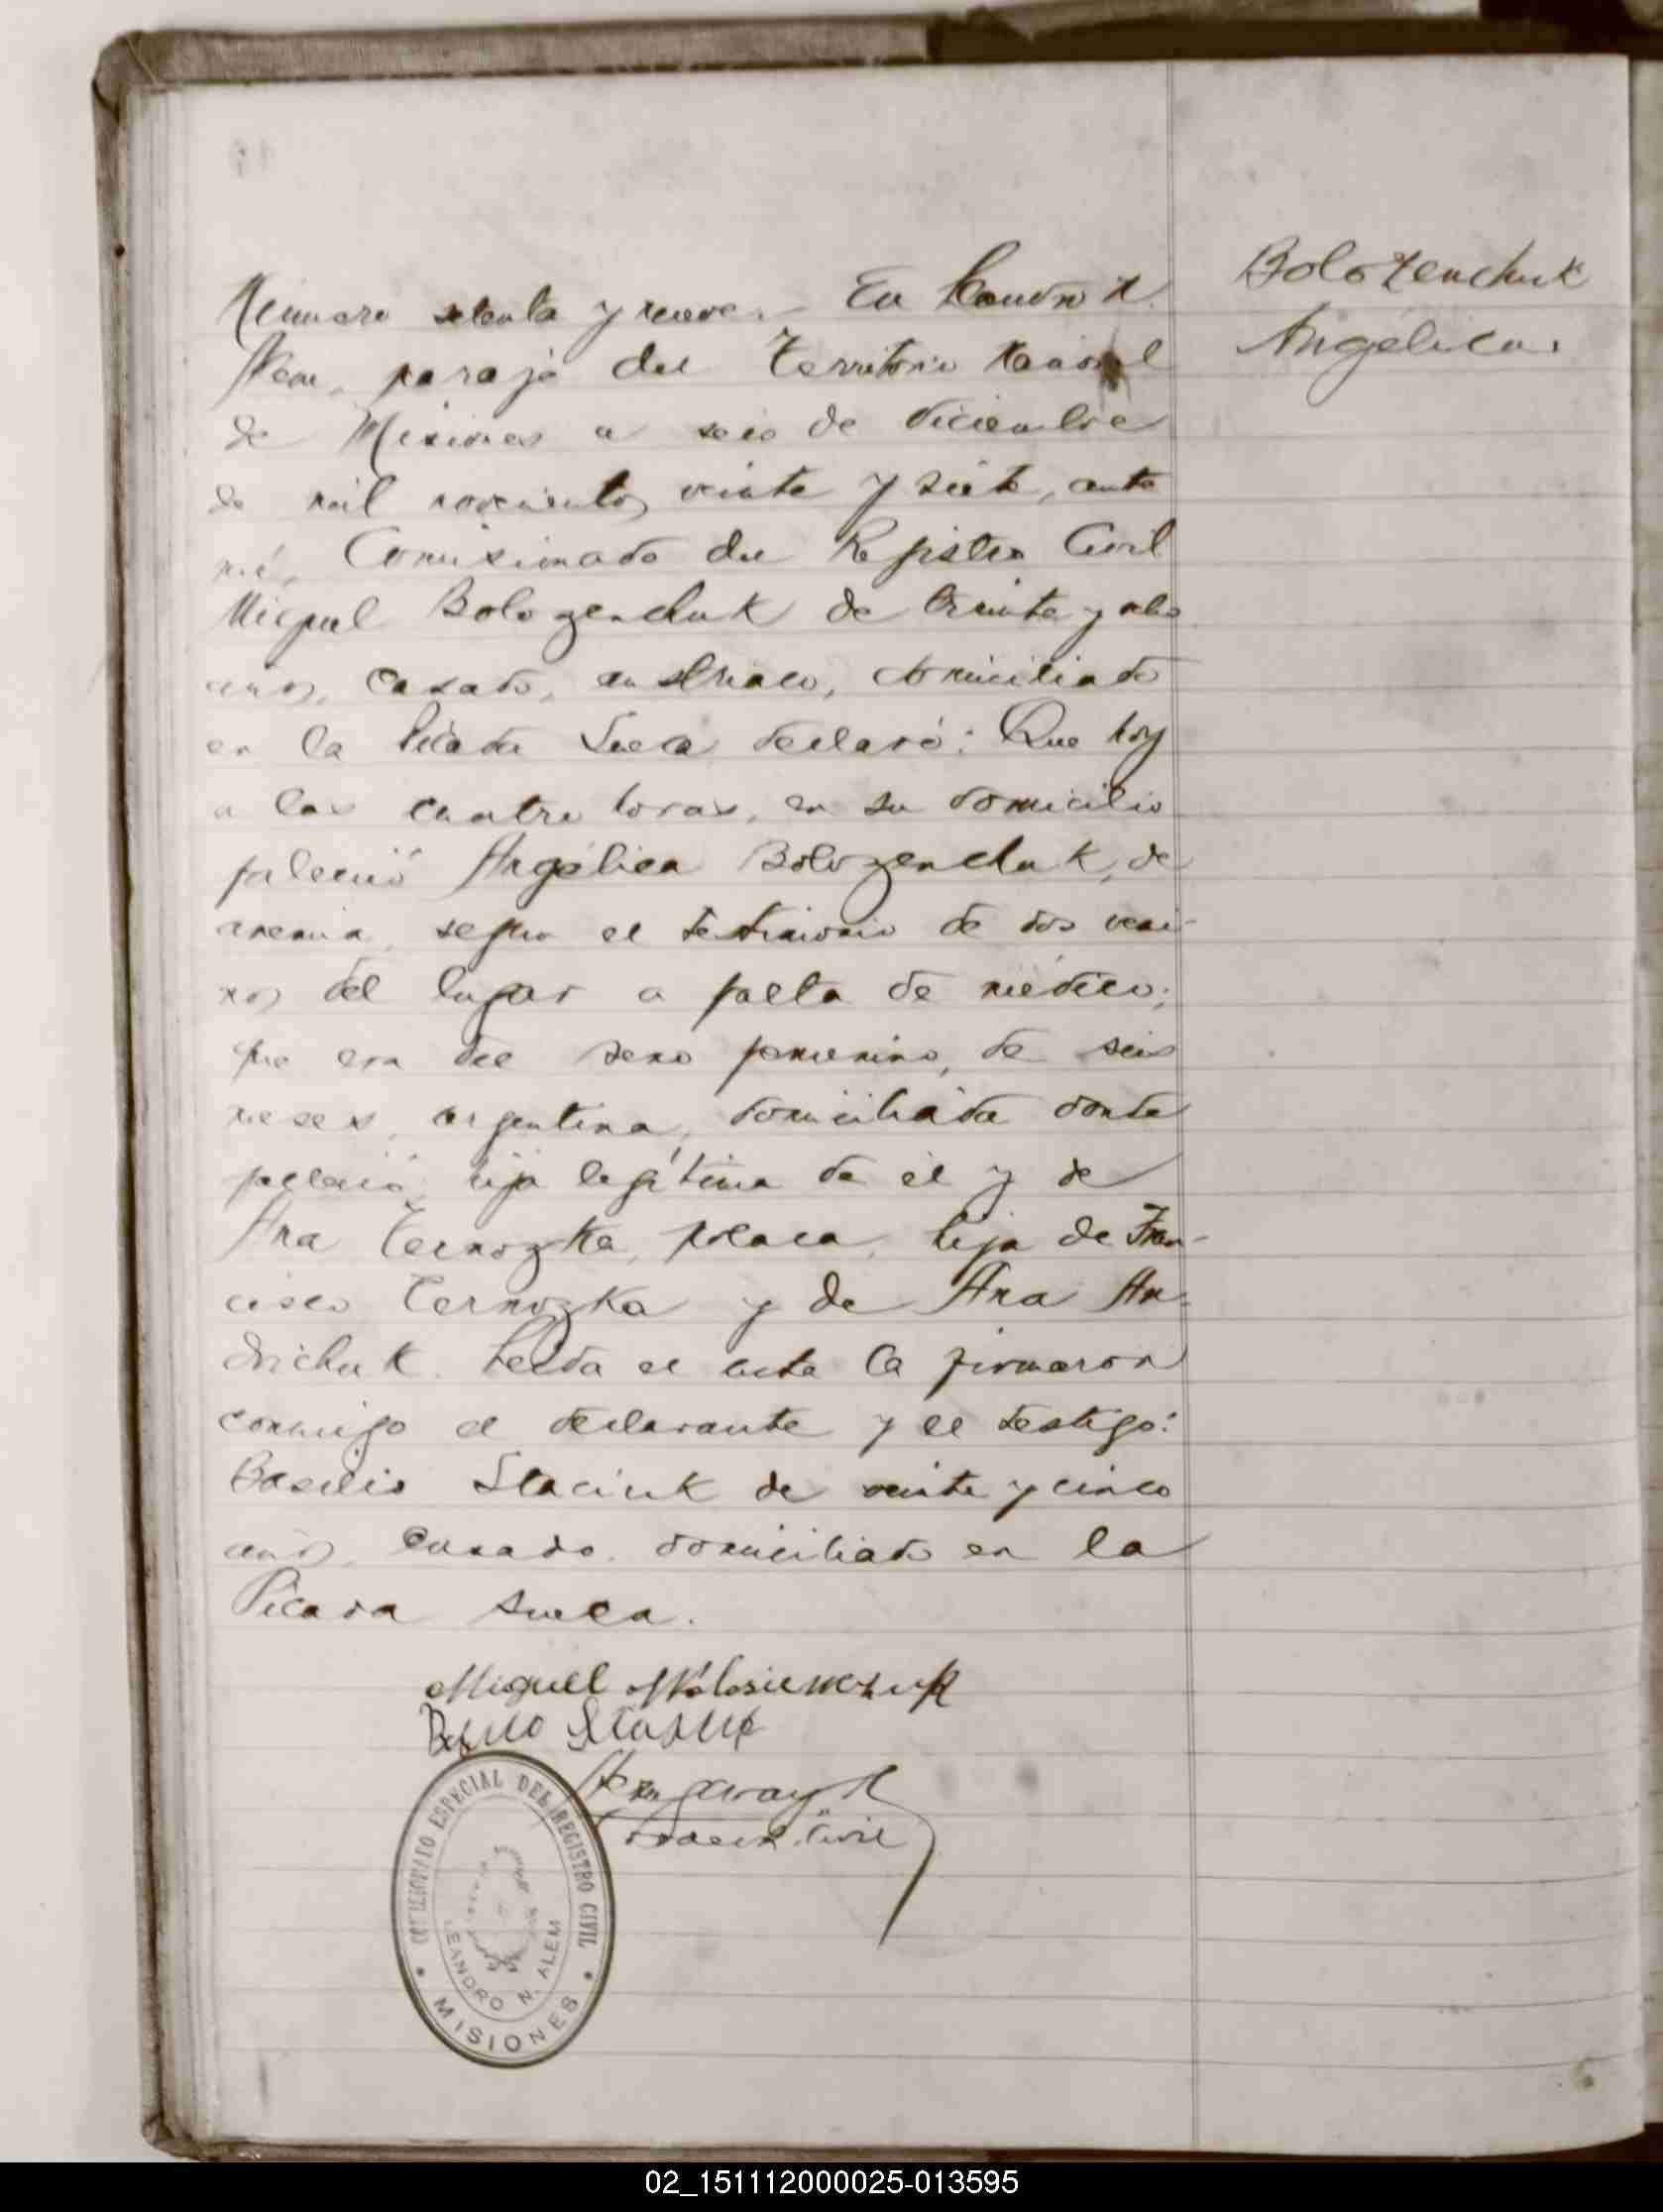 Bolozenchuk
Angélica.
Número setenta y nueve.- En Leandro N.
Alem, paraje del Territorio Nacional
de Misiones a seis de diciembre
de mil novecientos veinte y siete, ante
mí, Comisionado del Registro Civil
Miguel Bolozenchuk de treinta y ocho
años, casado, austriaco, domiciliado
en la Picada Sueca declaró: Que hoy
a las cuatro horas, en su domicilio
falleció Angélica Bolozenchuk, de
anemia, según el testimonio de dos veci-
nos del lugar a falta de médico;
que era del sexo femenino, de seis
meses, argentina, domiciliada donde
falleció, hija legítima de él y de
Ana Cernozka, polaca, hija de Fran-
cisco Cernozka y de Ana An-
drichuk. Leída el acta la firmaron
conmigo el declarante y el testigo:
Basilio Staciuk de veinte y cinco
años, casado, domiciliado en la
Picada Sueca.
Miguel
COMISIONATO ESPECIAL DEL REGISTRO CIVIL
LEANDRO N. ALEM
• MISIONES •
02_151112000025-013595